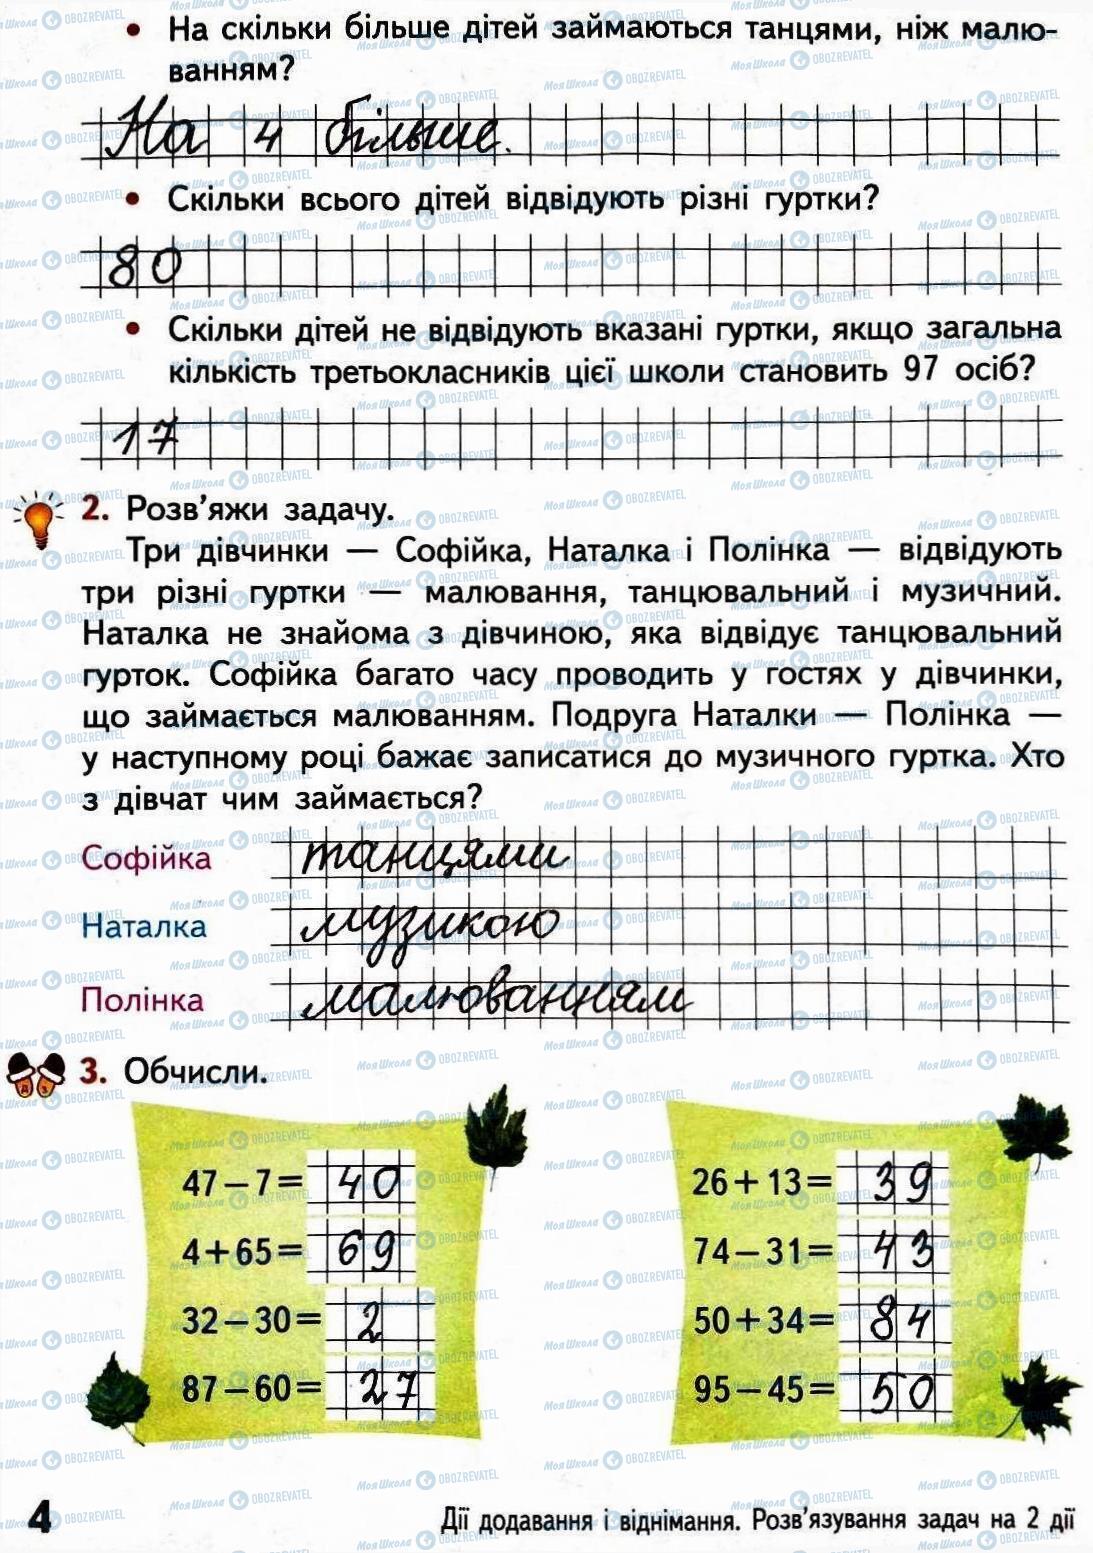 • На скільки більше дітей займаються танцями, ніж малю-
ванням?
На 4 більше.
• Скільки всього дітей відвідують різні гуртки?
80
• Скільки дітей не відвідують вказані гуртки, якщо загальна
кількість третьокласників цієї школи становить 97 осіб?
17
2. Розв'яжи задачу.
Три дівчинки — Софійка, Наталка і Полінка — відвідують
три різні гуртки — малювання, танцювальний і музичний.
Наталка не знайома з дівчиною, яка відвідує танцювальний
гурток. Софійка багато часу проводить у гостях у дівчинки,
що займається малюванням. Подруга Наталки — Полінка —
у наступному році бажає записатися до музичного гуртка. Хто
з дівчат чим займається?
Софійка танцями
Наталка музикою
Полінка малюванням
3. Обчисли.
47 – 7 = 40
4 + 65 = 69
32 – 30 = 2
87 – 60 = 27
26 + 13 = 39
74 – 31 = 43
50 + 34 = 84
95 – 45 = 50
4
Дії додавання і віднімання. Розв'язування задач на 2 дії
МояШкола OBOZREVATEL